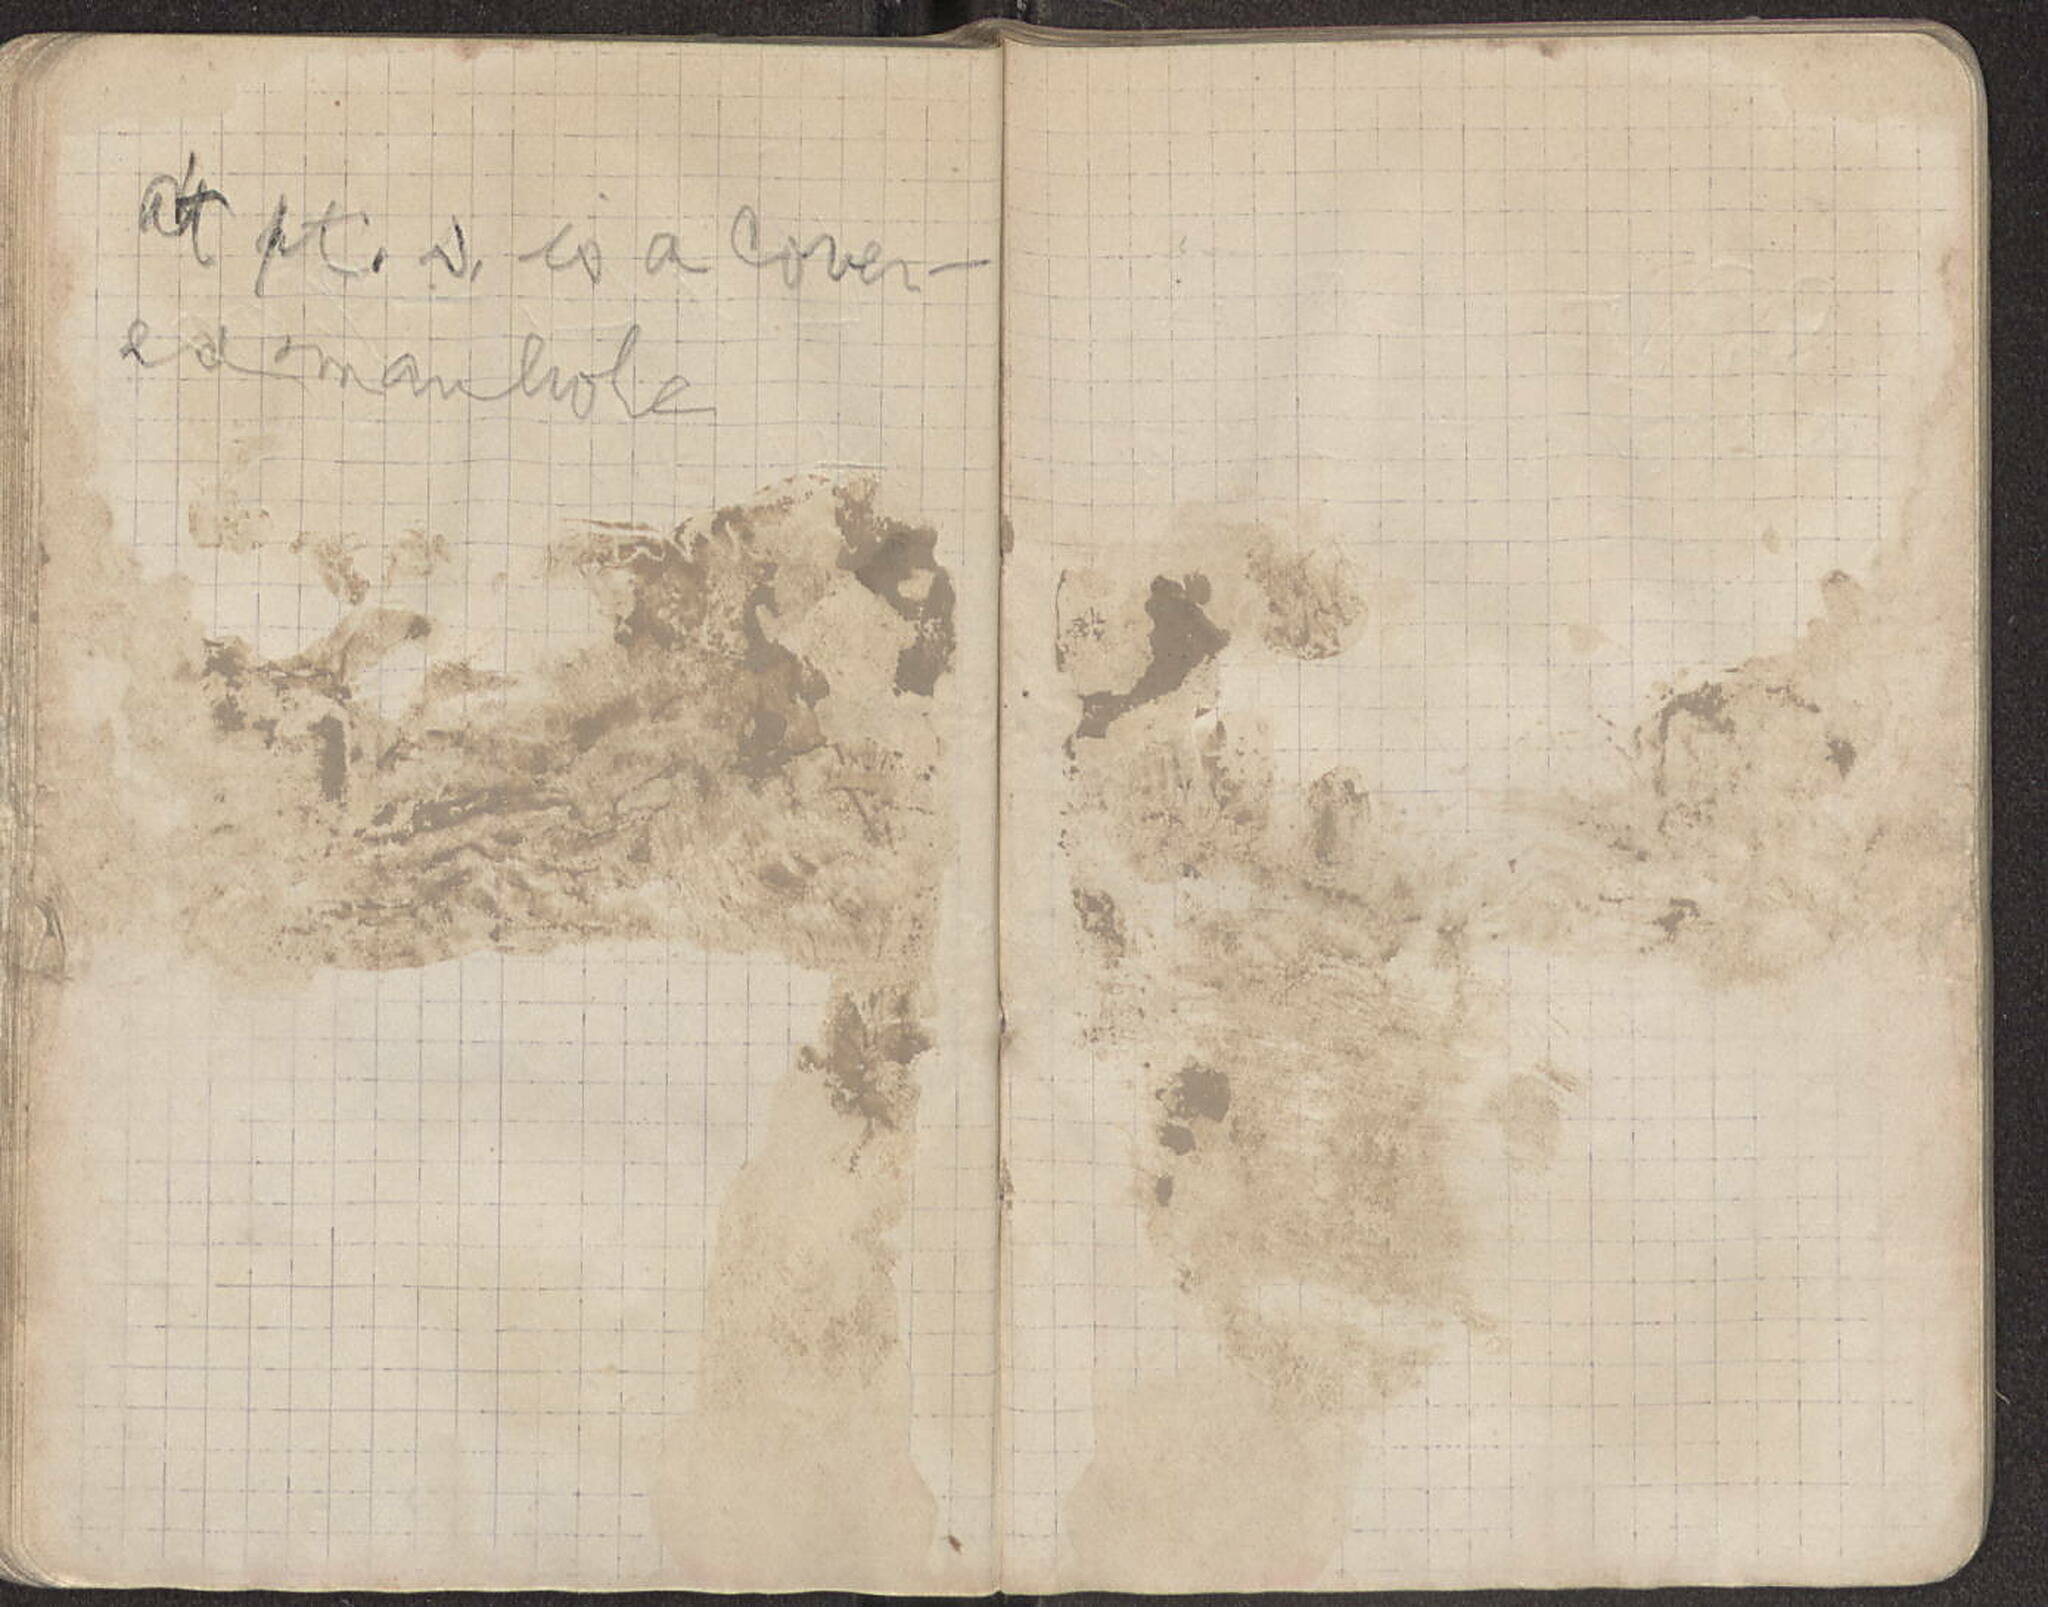 at pt. s. is a cover-
ed manhole